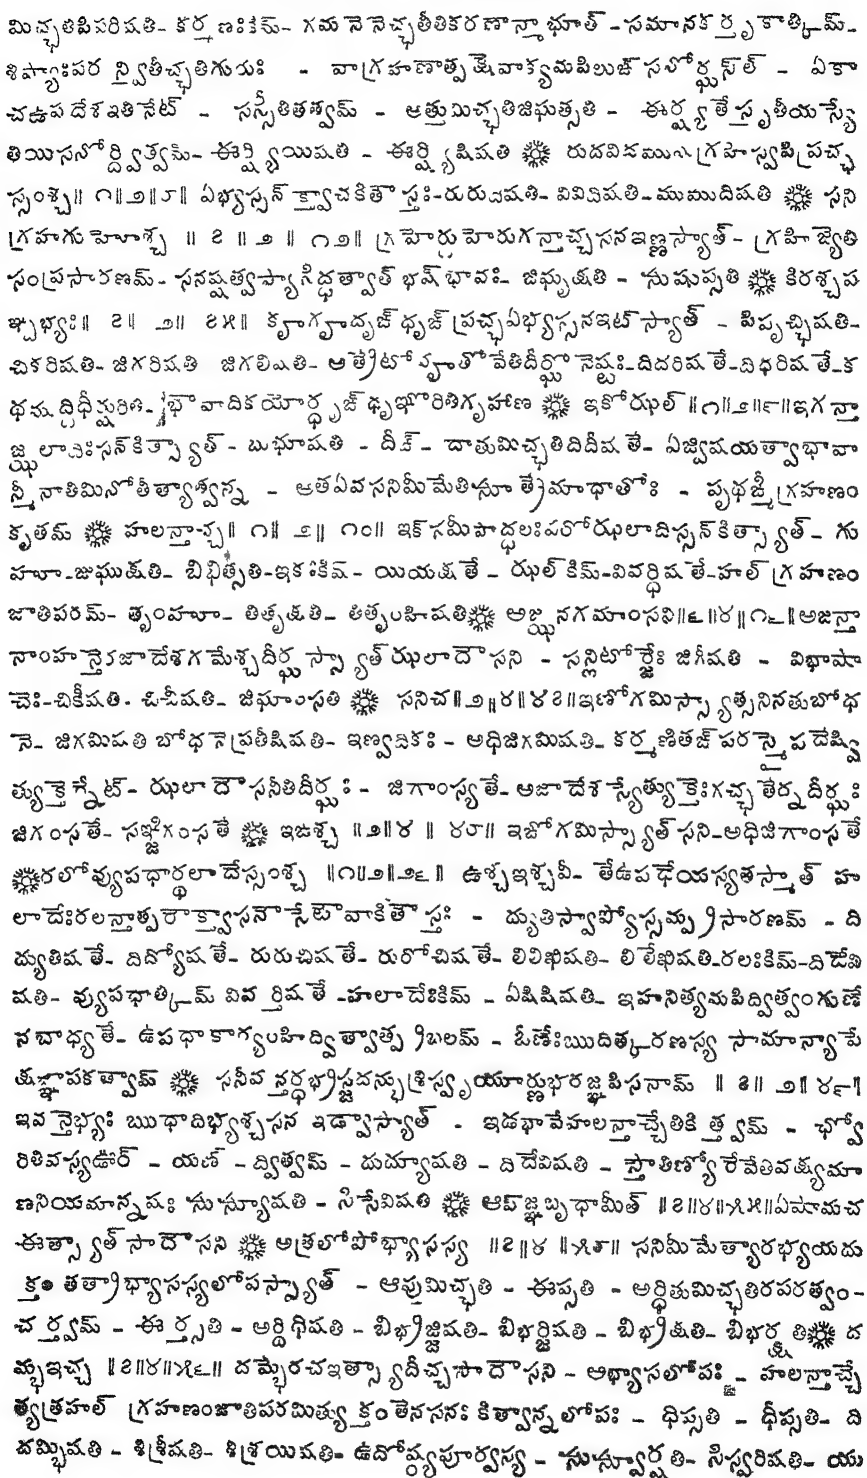 మిచ్ఛతిపిపఠిషతి- కర్మణఃకిమ్- గమనేనేచ్ఛతీతికరణాన్మాభూత్ -సమానకర్తృకాత్కిమ్-
శిష్యాఃపఠన్త్వితీచ్ఛతిగురుః - వాగ్రహణాత్పక్షేవాక్యమపిలుఙ్ సనోర్ఘసౢల్ - ఏకా
చఉపదేశఇతినేట్ - సస్సీతితత్వమ్ - అత్తుమిచ్ఛతిజిఘత్సతి - ఈర్ష్యతేస్తృతీయస్యే
తియిసనోర్ద్విత్వమ్- ఈర్ష్యియిషతి - ఈర్ష్యిషిషతి ❋ రుదవిదముషగ్రహిస్వపిప్రచ్ఛ
స్సంశ్చ॥ ౧॥౨॥౮॥ ఏభ్యస్సన్ క్త్వాచకితౌ స్తః-రురుదిషతి- వివిదిషతి-ముముదిషతి ❋ సని
గ్రహగుహోశ్చ ॥ ౭ ॥ ౨ ॥ ౧౨॥ గ్రహేర్గుహేరుగన్తాచ్చసనఇణ్ణస్యాత్- గ్రహిజ్యేతి
సంప్రసారణమ్- సనష్షత్వస్యాసిద్ధత్వాత్ భష్ భావః- జిఘృక్షతి - సుషుప్సతి ❋ కిరశ్చప
ఞ్చభ్యః॥ ౭॥ ౨॥ ౭౫॥ కౄగౄదృఙ్ ధృఙ్ ప్రచ్ఛఏభ్యస్సనఇట్ స్యాత్ - పిపృచ్ఛిషతి-
చికరిషతి- జిగరిషతి జిగలిషతి- అత్రేటో వౄతోవేతిదీర్ఘోనేష్టః-దిదరిషతే-దిధరిషతే-క
థముద్దిధీర్షురితి- భౌవాదికయోర్ధృఙ్ ధృఞోరితిగృహాణ ❋ ఇకోఝల్ ॥౧॥౨॥౯॥ఇగన్తా
జ్ఝలాదిఃసన్ కిత్స్యాత్ - బుభూషతి - దీఙ్ - దాతుమిచ్ఛతిదిదీషతే- ఏజ్విషయత్వాభావా
న్మీనాతిమినోతీత్యాత్వన్న - అతఏవసనిమీమేతిసూత్రేమాధాతోః - పృథఙ్మీగ్రహణం
కృతమ్ ❋ హలన్తాచ్చ॥ ౧॥ ౨॥ ౧౦॥ ఇక్ సమీపాద్ధలఃపరోఝలాదిస్సన్ కిత్స్యాత్ - గు
హూ-జుఘుక్షతి- బిభిత్సతి-ఇకఃకిమ్- యియక్షతే - ఝల్ కిమ్-వివర్ధిషతే-హల్ గ్రహణం
జాతిపరమ్- తృంహూ- తితృక్షతి- తితృంహిషతి❋ అజ్ఝనగమాంసని॥౬॥౪॥౧౬॥అజన్తా
నాంహన్తేరజాదేశగమేశ్చదీర్ఘస్స్యాత్ ఝలాదౌసని - సన్లిటోర్జేః జిగీషతి - విభాషా
చేః-చికీషతి- చిచీషతి- జిఘాంసతి ❋ సనిచ॥౨॥౪॥౪౭॥ఇణోగమిస్స్యాత్సనినతుబోధ
నే- జిగమిషతి బోధనేప్రతీషిషతి- ఇణ్వదికః - అధిజిగమిషతి- కర్మణితఙ్ పరస్మైపదేష్వి
త్యుక్తేర్నేట్- ఝలాదౌసనీతిదీర్ఘః- జిగాంస్యతే- అజాదేశస్యేత్యుక్తేఃగచ్ఛతేర్నదీర్ఘః
జిగంసతే- సఞ్జిగంసతే ❋ ఇఙశ్చ ॥౨॥౪ ॥ ౪౮॥ ఇఙోగమిస్స్యాత్ సని-అధిజిగాంసతే
❋రలోవ్యుపధార్ధలాదేస్సంశ్చ ॥౧॥౨॥౨౬॥ ఉశ్చఇశ్చవీ- తేఉపధేయస్యతస్మాత్ హ
లాదేఃరలన్తాత్పరౌక్త్వాసనౌసేటౌవాకితౌస్తః - ద్యుతిస్వాప్యోస్సమ్ప్రసారణమ్ - ది
ద్యుతిషతే- దిద్యోషతే- రురుచిషతే- రురోచిషతే- లిలిఖిషతి- లిలేఖిషతి-రలఃకిమ్-దిదేవి
షతి- వ్యుపధాత్కిమ్ వివర్తిషతే -హలాదేఃకిమ్ - ఏషిషిషతి- ఇహనిత్యమపిద్విత్వంగుణే
నబాధ్యతే- ఉపధాకార్యంహిద్విత్వాత్ప్రబలమ్ - ఓణేఃఋదిత్కరణస్య సామాన్యాపే
క్షజ్ఞాపకత్వామ్ ❋ సనీవన్తర్ధభ్రస్జదమ్భుశ్రిస్వృయూర్ణుభరజ్ఞపిసనామ్ ॥ ౭॥ ౨॥ ౪౯॥
ఇవన్తేభ్యః ఋధాదిభ్యశ్చసన ఇడ్వాస్యాత్ - ఇడభావేహలన్తాచ్చేతికిత్త్వమ్ - ఛ్వో
రితివస్యఊఠ్ - యణ్ - ద్విత్వమ్ - దుద్యూషతి - దిదేవిషతి - స్తౌతిణ్యోరేవేతివక్ష్యమా
ణనియమాన్నషః సుస్యూషతి - సిసేవిషతి ❋ ఆప్ జ్ఞప్యృధామీత్ ॥౭॥౪॥౫౫॥ఏషామచ
ఈత్స్యాత్ సాదౌసని ❋ అత్రలోపోభ్యాసస్య ॥౭॥౪ ॥౫౮॥ సనిమీమేత్యారభ్యయదు
క్తం తత్రాభ్యాసస్యలోపస్స్యాత్ - ఆప్తుమిచ్ఛతి - ఈప్సతి - అర్ధితుమిచ్ఛతిరపరత్వం-
చర్త్వమ్ - ఈర్త్సతి - అర్దిధిషతి - బిభ్రజ్జిషతి- బిభర్జిషతి - బిభ్రక్షతి- బిభర్క్షతి❋ ద
మ్భఇచ్చ ॥౭॥౪॥౫౬॥ దమ్భేరచఇత్స్యాదీచ్చసాదౌసని - అభ్యాసలోపః - హలన్తాచ్చే
త్యత్రహల్ గ్రహణంజాతిపరమిత్యుక్తం తేనసనః కిత్వాన్నలోపః - ధిప్సతి - ధీప్సతి- ది
దమ్భిషతి - శిశ్రీషతి- శిశ్రయిషతి- ఉదోష్ఠ్యపూర్వస్య - సుస్వూర్షతి- సిస్వరిషతి- యు